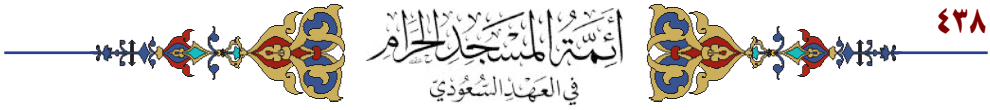 ٤٣٨
أئمة المسجد الحرام
في العهد السعودي